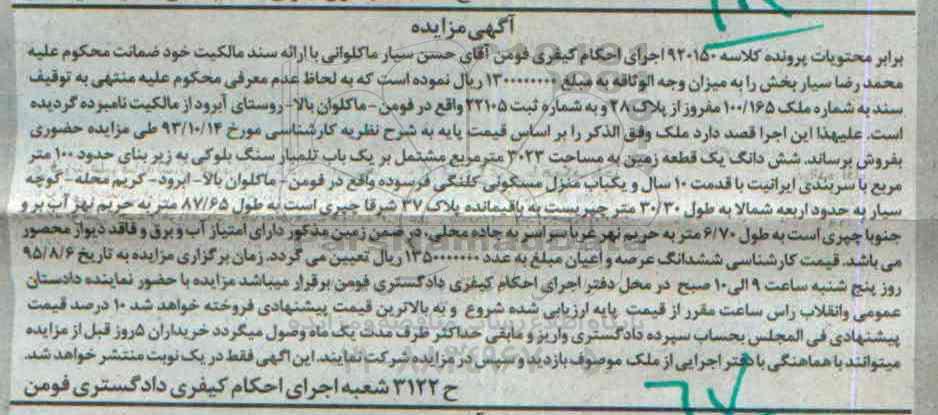 آگهی مزایده
برابر محتویات پرونده کلاسه ۹۲۰۱۵۰ اجرای احکام کیفری فومن آقای حسن سیار ماکلوانی با ارائه سند مالکیت خود ضمانت محکوم علیه
محمدرضا سیار بخش را به میزان وجه الوثاقه به مبلغ ۱۳۰۰۰۰۰۰۰ ریال نموده است که به لحاظ عدم معرفی محکوم علیه منتهی به توقیف
سند به شماره ملک ۱۰۰/۱۶۵ مفروز از پلاک ۲۸ و به شماره ثبت ۲۲۱۰۵ واقع در فومن - ماکلوان بالا - روستای آبرود از مالکیت نامبرده گردیده
است. علیهذا این اجرا قصد دارد ملک وفق الذکر را بر اساس قیمت پایه به شرح نظریه کارشناسی مورخ ۹۳/۱۰/۱۴ طی مزایده حضوری
بفروش برساند. شش دانگ یک قطعه زمین به مساحت ۳۰۲۳ مترمربع مشتمل بر یک باب تلمبار سنگ بلوکی به زیر بنای حدود ۱۰۰ متر
مربع با سربندی ایرانیت با قدمت ۱۰ سال و یکباب منزل مسکونی کلنگی فرسوده واقع در فومن - ماکلوان بالا - ابرود - کریم محله - کوچه
سیار به حدود اربعه شمالا به طول ۳۰/۳۰ متر چپریست به باقیمانده پلاک ۳۷ شرقا چپری است به طول ۸۷/۶۵ متر به حریم نهر آب بر و
جنوبا چپری است به طول ۶/۷۰ متر به حریم نهر غربا سراسر به جاده محلی، در ضمن زمین مذکور دارای امتیاز آب و برق و فاقد دیوار محصور
می باشد. قیمت کارشناسی ششدانگ عرصه و اعیان مبلغ به عدد ۱۳۵۰۰۰۰۰۰۰ ریال تعیین می گردد. زمان برگزاری مزایده به تاریخ ۹۵/۸/۶
روز پنج شنبه ساعت ۹ الی ۱۰ صبح در محل دفتر اجرای احکام کیفری دادگستری فومن برقرار میباشد مزایده با حضور نماینده دادستان
عمومی وانقلاب راس ساعت مقرر از قیمت پایه ارزیابی شده شروع و به بالاترین قیمت پیشنهادی فروخته خواهد شد ۱۰ درصد قیمت
پیشنهادی فی المجلس بحساب سپرده دادگستری واریز و مابقی حداکثر ظرف مدت یک ماه وصول میگردد خریداران ۵ روز قبل از مزایده
میتوانند با هماهنگی با دفتر اجرایی از ملک موصوف بازدید و سپس در مزایده شرکت نمایند. این آگهی فقط در یک نوبت منتشر خواهد شد.
ح ۳۱۲۲ شعبه اجرای احکام کیفری دادگستری فومن
ParsNamadData